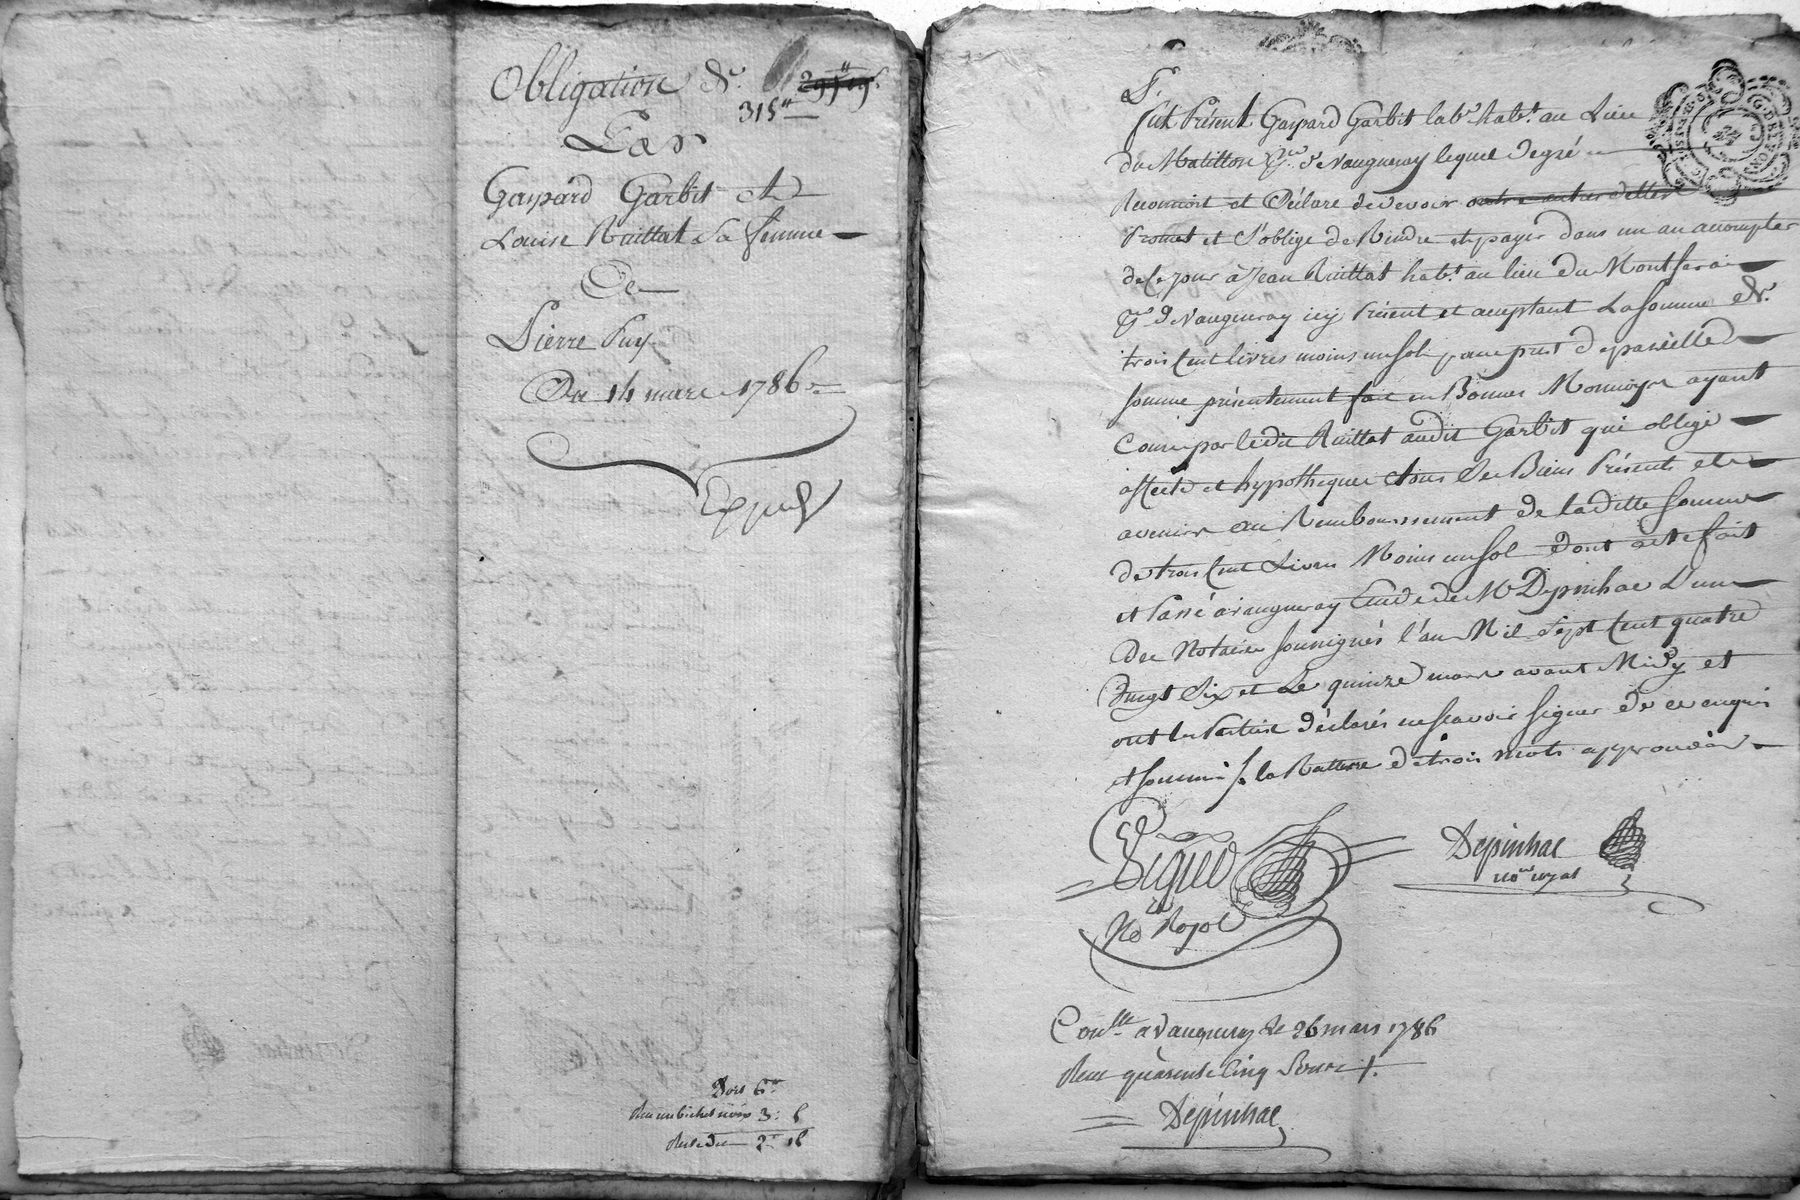 Obligation de
315"
Par
Gaspard Garbit et
Louise Ruillat Sa femme
De
Pierre Puy
Du 14 mars 1786
Dois 6"
Reçu un bichet noix 3: 6
Reste Du 2" 18
fut Présent Gaspard Garbit lab.r hab.t au Lieu
du Matillon P.sse de Vaugneray lequel de gré
Reconnoit et Déclare de devoir outre autres dettes
Promet et S'oblige de Rendre et payer dans un an a compter
de Ce jour à Jean Ruillat hab.t au lieu du Montferat
P.sse de Vaugneray icy Présent et acceptant La Somme de
trois Cent livres moins un Sol, pour prest de pareille
Somme présentement fait en Bonnes Monnoyes ayant
Cours par le dit Ruillat au dit Garbit qui oblige
affecte et hypotheque tous Ses Biens Présents et
avenir au Remboursement de la ditte Somme
de trois Cent Livres Moins un Sol dont acte fait
et Passé à vaugneray Etude de Me Depinhac L'un
des Notaires Soussignés l'an Mil Sept Cent quatre
vingt Six et Le quinze mars avant Midy et
ont les Parties déclarés ne Scavoir Signer de ce enquis
et Sommés /. la Rature de trois mots approuvée
Depinhac
no.re royal
No.re Royal
Con.lle a Vaugneray le 26 mars 1786
Recu quarente Cinq Sous
Depinhac